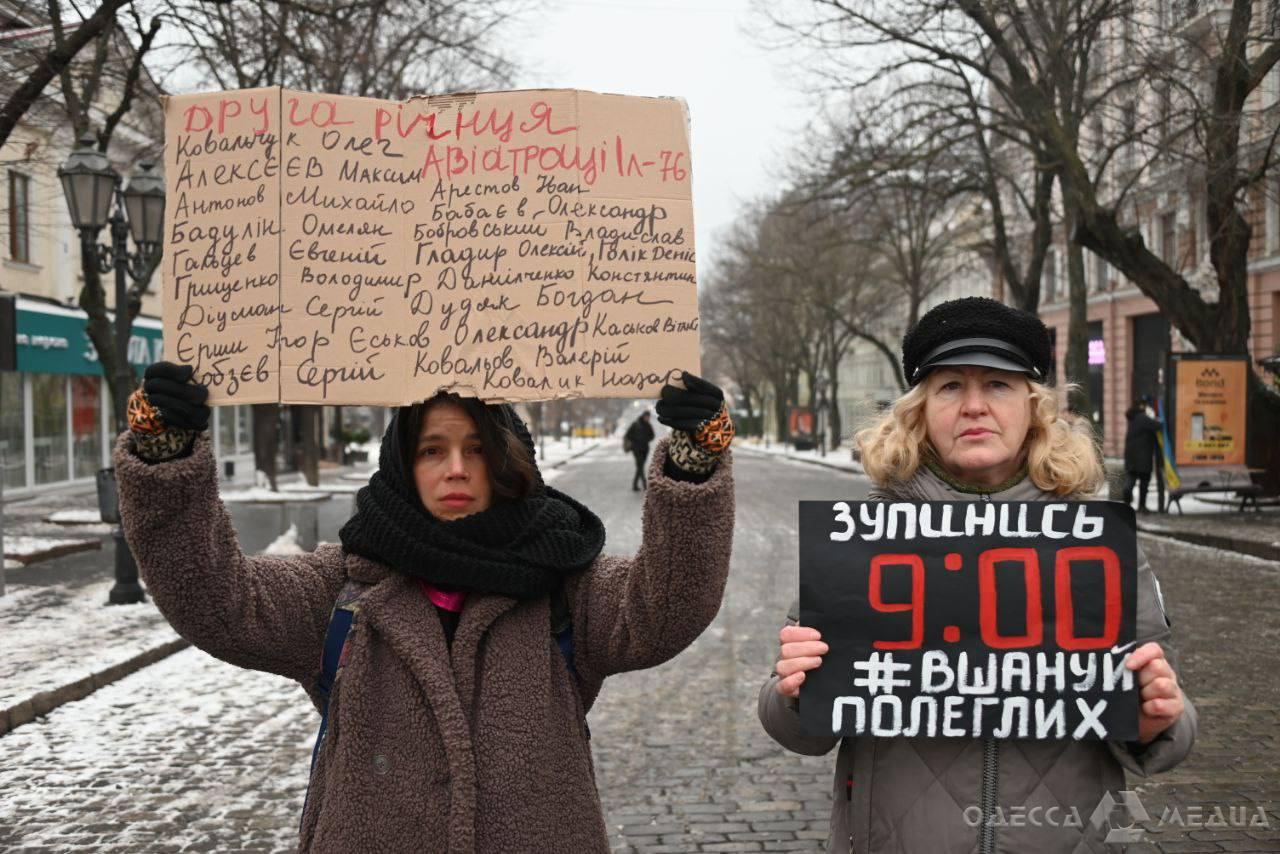 Друга річниця
Авіатраці Іл-76
Ковальчук Олег
Алексєєв Максим
Антонов Михайло
Бадулін Омелян
Гальцев Євгеній
Грищенко Володимир
Діусман Сергій
Єршн Ігор
Кобзєв Сергій
Арестов Іван
Бабаєв Олександр
Бобровський Владислав
Гладир Олексій, Голік Деніс
Данильченко Константин
Дудяк Богдан
Єськов Олександр Каськов Віталій
Ковальов Валерій
Ковалик Назар
ЗУПИНИСЬ
9:00
#ВШАНУЙ
ПОЛЕГЛИХ
Bond
ОДЕССА МЕДІА